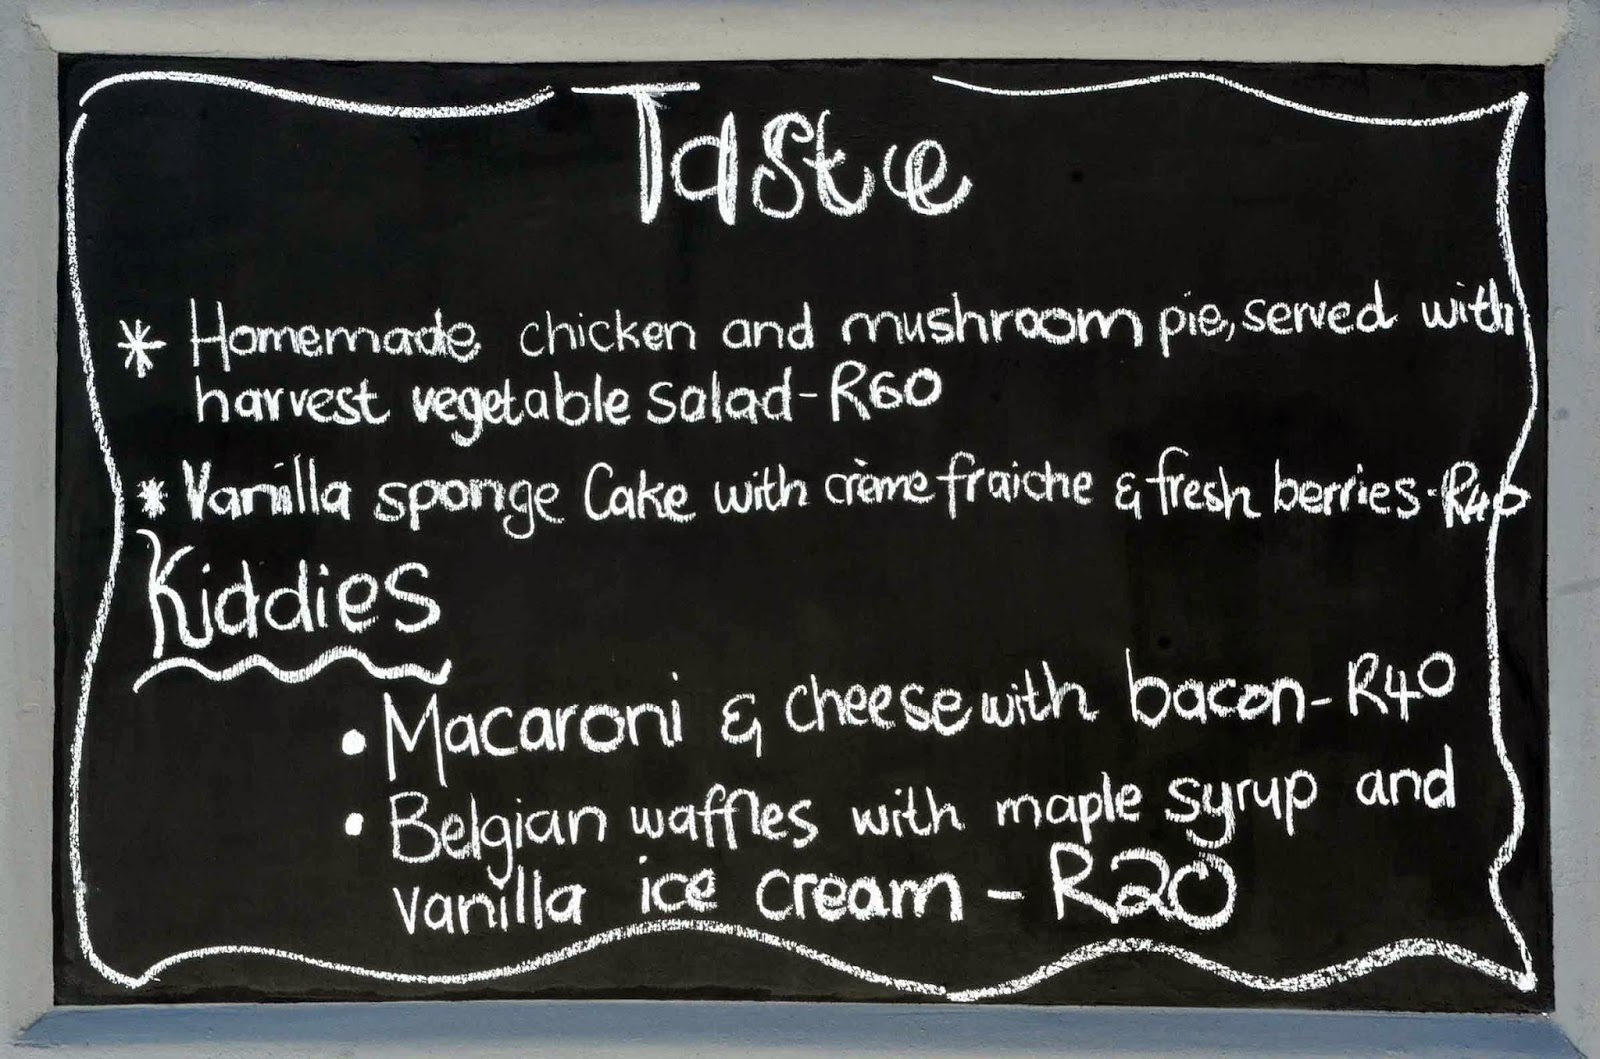 Taste
* Homemade chicken and mushroom pie, served with
harvest vegetable salad - R60
* Vanilla sponge Cake with crème fraiche & fresh berries - R40
Kiddies
• Macaroni & cheese with bacon - R40
• Belgian waffles with maple syrup and
vanilla ice cream - R20